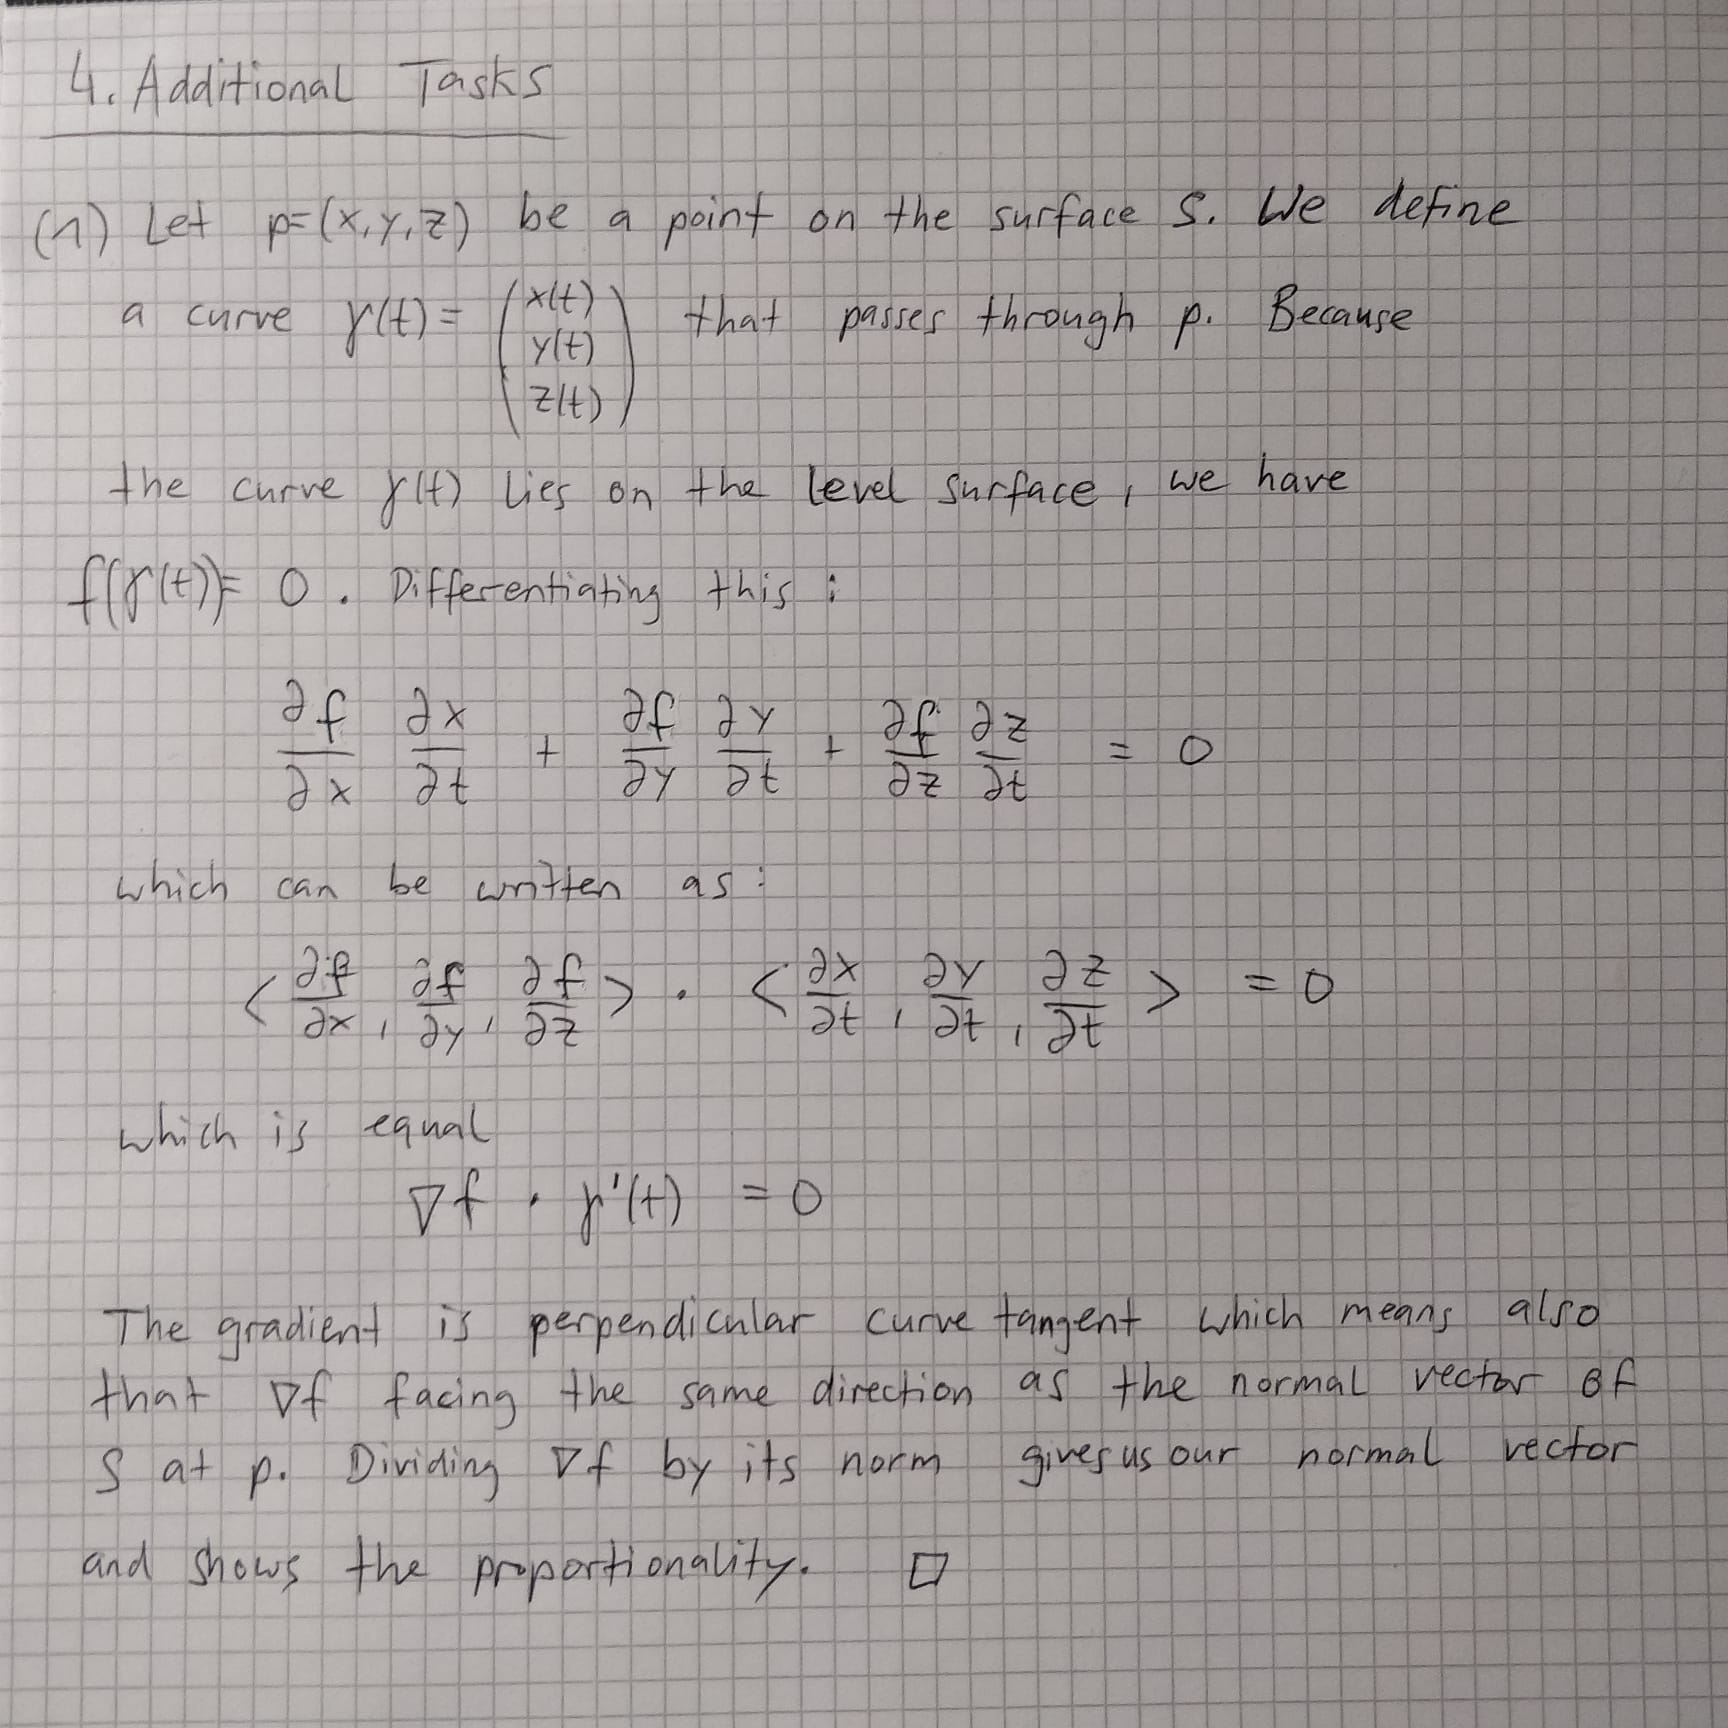 4. Additional Tasks
(1) Let p=(x,y,z) be a point on the surface S. We define
a curve γ(t) = (x(t) y(t) z(t)) that passes through p. Because
the curve γ(t) lies on the level surface, we have
f(γ(t))= 0. Differentiating this:
∂f/∂x ∂x/∂t + ∂f/∂y ∂y/∂t + ∂f/∂z ∂z/∂t = 0
which can be written as:
<∂f/∂x, ∂f/∂y, ∂f/∂z> · <∂x/∂t, ∂y/∂t, ∂z/∂t> = 0
which is equal
∇f · γ'(t) = 0
The gradient is perpendicular curve tangent which means also
that ∇f facing the same direction as the normal vector of
S at p. Dividing ∇f by its norm gives us our normal vector
and shows the proportionality. □